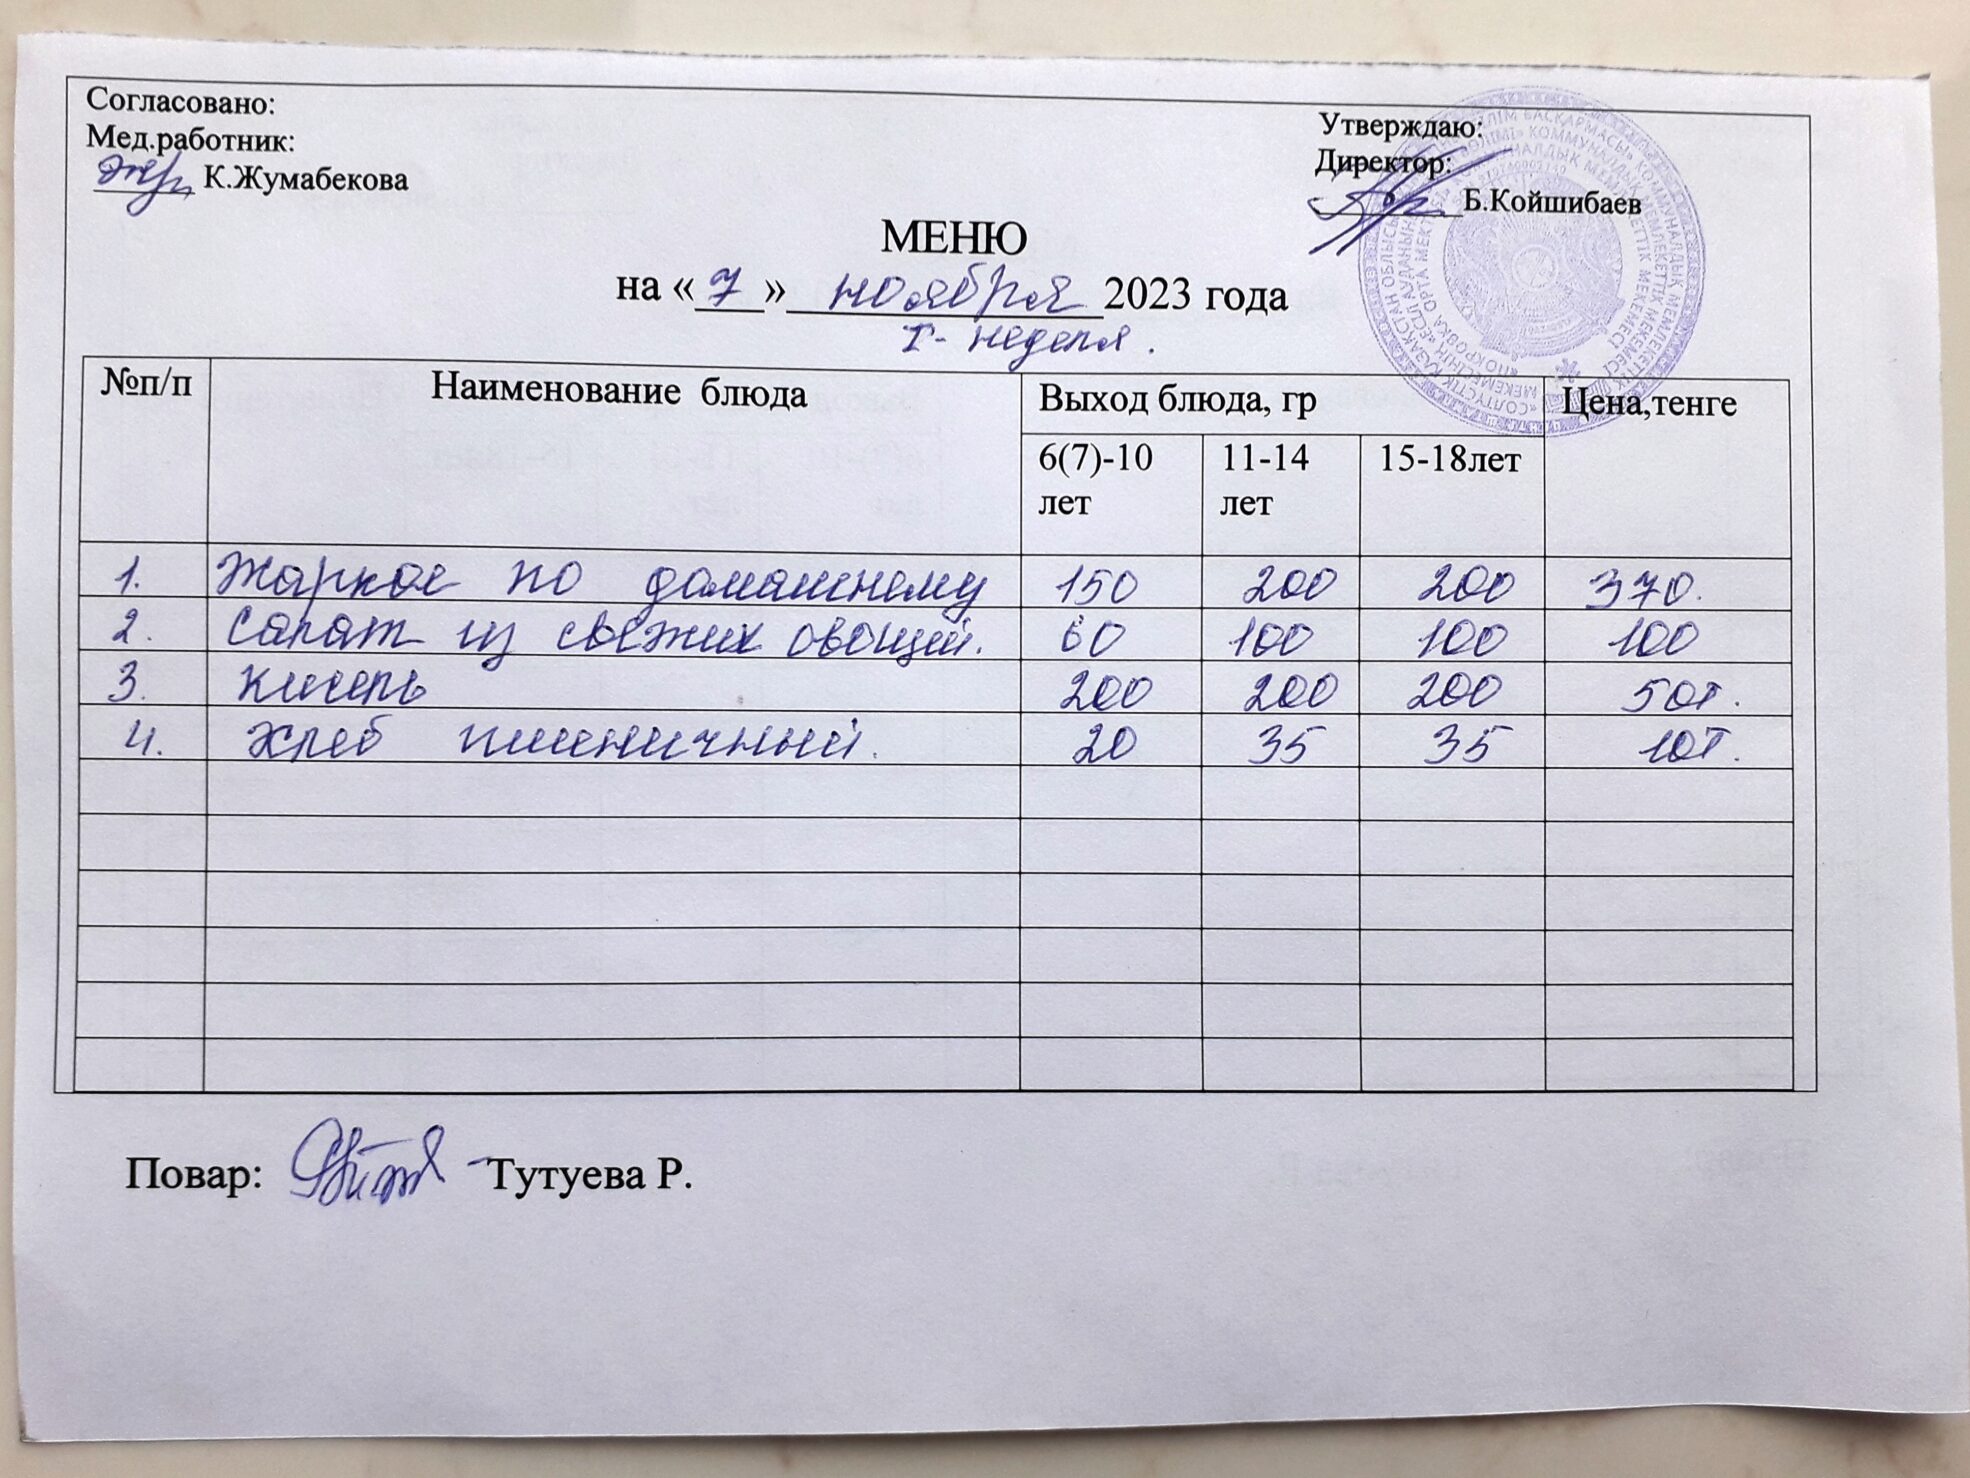 Согласовано:
Мед.работник:
К.Жумабекова
Утверждаю:
Директор:
Б.Койшибаев
МЕНЮ
на «7» ноября 2023 года
I - неделя.
№п/п Наименование блюда Выход блюда, гр Цена,тенге
6(7)-10 лет 11-14 лет 15-18лет
1. Жаркое по домашнему 150 200 200 370.
2. Салат из свежих овощей. 60 100 100 100
3. Кисель 200 200 200 50т.
4. Хлеб пшеничный. 20 35 35 10т.
Повар: Тутуева Р.